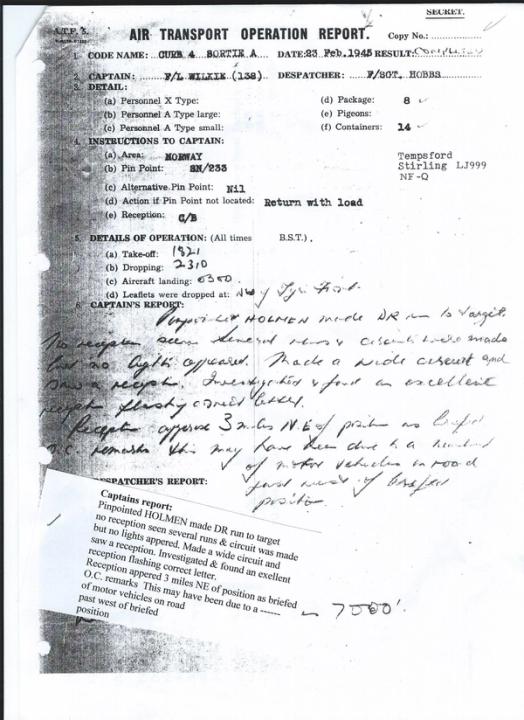 SECRET.
A.T.F. 3.
AIR TRANSPORT OPERATION REPORT. Copy No.:
1. CODE NAME: CURB 4 SORTIE A DATE: 23 Feb. 1945 RESULT: Completed
2. CAPTAIN: F/L WILKIE (138) DESPATCHER: F/SGT. HOBBS
3. DETAIL:
(a) Personnel X Type: (d) Package: 8 ✓
(b) Personnel A Type large: (e) Pigeons:
(c) Personnel A Type small: (f) Containers: 14 ✓
4. INSTRUCTIONS TO CAPTAIN:
(a) Area: NORWAY
(b) Pin Point: SN/233
(c) Alternative Pin Point: Nil
(d) Action if Pin Point not located: Return with load
(e) Reception: C/B
Tempsford
Stirling LJ999
NF-Q
5. DETAILS OF OPERATION: (All times B.S.T.).
(a) Take-off: 1821
(b) Dropping: 2310
(c) Aircraft landing: 0300
(d) Leaflets were dropped at:
6. CAPTAIN'S REPORT:
Pinpointed HOLMEN made DR run to target
no reception seen several runs & circuit were made
but no lights appeared. Made a wide circuit and
saw a recept. Investigated & found an excellent
recept flashing correct letter.
Recept approx 3 miles N.E of position as briefed
O.C. remarks this may have been due to a
of motor vehicles on road
just west of briefed
position
DESPATCHER'S REPORT:
Captains report:
Pinpointed HOLMEN made DR run to target
no reception seen several runs & circuit was made
but no lights appered. Made a wide circuit and
saw a reception. Investigated & found an exellent
reception flashing correct letter.
Reception appered 3 miles NE of position as briefed
O.C. remarks This may have been due to a -------
of motor vehicles on road
past west of briefed
position
7000'.